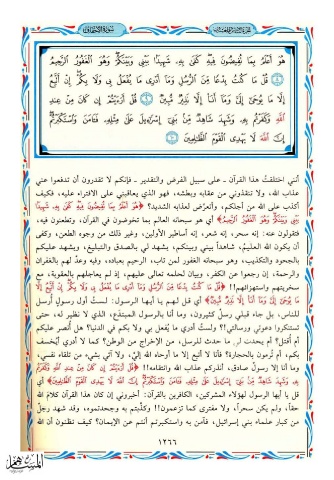 سورة الأحقاف
هُوَ أَعْلَمُ بِمَا تُفِيضُونَ فِيهِ كَفَىٰ بِهِ شَهِيدًا بَيْنِي وَبَيْنَكُمْ وَهُوَ الْغَفُورُ الرَّحِيمُ
قُلْ مَا كُنْتُ بِدْعًا مِنَ الرُّسُلِ وَمَا أَدْرِي مَا يُفْعَلُ بِي وَلَا بِكُمْ إِنْ أَتَّبِعُ
إِلَّا مَا يُوحَىٰ إِلَيَّ وَمَا أَنَا إِلَّا نَذِيرٌ مُبِينٌ قُلْ أَرَأَيْتُمْ إِنْ كَانَ مِنْ عِنْدِ
اللَّهِ وَكَفَرْتُمْ بِهِ وَشَهِدَ شَاهِدٌ مِنْ بَنِي إِسْرَائِيلَ عَلَىٰ مِثْلِهِ فَآمَنَ وَاسْتَكْبَرْتُمْ
إِنَّ اللَّهَ لَا يَهْدِي الْقَوْمَ الظَّالِمِينَ
أنني اختلقتُ هذا القرآن - على سبيل الفرض والتقدير - فإنكم لا تقدرون أن تدفعوا عني
عذاب الله، ولا تنقذوني من عقابه وبطشه، فهو الذي يعاقبني على الافتراء عليه، فكيف
أكذب على الله من أجلكم، وأتعرَّض لعذابه الشديد؟ ﴿هُوَ أَعْلَمُ بِمَا تُفِيضُونَ فِيهِ كَفَىٰ بِهِ شَهِيدًا
بَيْنِي وَبَيْنَكُمْ وَهُوَ الْغَفُورُ الرَّحِيمُ﴾ أي هو سبحانه العالم بما تخوضون في القرآن، وتطعنون فيه،
فتقولون عنه: إنه سحر، إنه شعر، إنه أساطير الأولين، وغير ذلك من وجوه الطعن، وكفى
أن يكون الله العليم، شاهداً بيني وبينكم، يشهد لي بالصدق والتبليغ، ويشهد عليكم
بالجحود والتكذيب، وهو سبحانه الغفور لمن تاب، الرحيم بعباده، وفيه وعدٌ لهم بالغفران
والرحمة، إن رجعوا عن الكفر، وبيان لحلمه تعالى عليهم، إذ لم يعاجلهم بالعقوبة، مع
سخريتهم واستهزائهم!! ﴿قُلْ مَا كُنْتُ بِدْعًا مِنَ الرُّسُلِ وَمَا أَدْرِي مَا يُفْعَلُ بِي وَلَا بِكُمْ إِنْ أَتَّبِعُ إِلَّا
مَا يُوحَىٰ إِلَيَّ وَمَا أَنَا إِلَّا نَذِيرٌ مُبِينٌ﴾ أي قل لهم يا أيها الرسول: لستُ أول رسولٍ أُرسل
للناس، بل جاء قبلي رسلٌ كثيرون، وما أنا بالرسول المبتدَع، الذي لا نظير له، حتى
تستنكروا دعوتي ورسالتي؟! ولستُ أدري ما يُفعل بي ولا بكم في الدنيا؟ هل أنتصر عليكم
أم أُقتل؟ أم يحدث لي ما حدث للرسل، من الإخراج من الوطن؟ كما لا أدري أيُخسف
بكم، أم تُرمون بالحجارة؟ فأنا لا أتبع إلا ما أوحاه الله إليَّ، ولا آتي بشيء من تلقاء نفسي،
وما أنا إلا رسولٌ صادق، أنذركم عذاب الله وانتقامه!! ﴿قُلْ أَرَأَيْتُمْ إِنْ كَانَ مِنْ عِنْدِ اللَّهِ وَكَفَرْتُمْ
بِهِ وَشَهِدَ شَاهِدٌ مِنْ بَنِي إِسْرَائِيلَ عَلَىٰ مِثْلِهِ فَآمَنَ وَاسْتَكْبَرْتُمْ إِنَّ اللَّهَ لَا يَهْدِي الْقَوْمَ الظَّالِمِينَ﴾ أي
قل يا أيها الرسول لهؤلاء المشركين، الكافرين بالقرآن: أخبروني إن كان هذا القرآن كلامَ الله
حقاً، ولم يكن سحراً، ولا مفترى كما تزعمون!! وكذَّبتم به وجحدتموه، وقد شهد رجلٌ
من كبار علماء بني إسرائيل، فآمن به واستكبرتم أنتم عن الإيمان؟ كيف تظنون أن الله
١٢٦٦